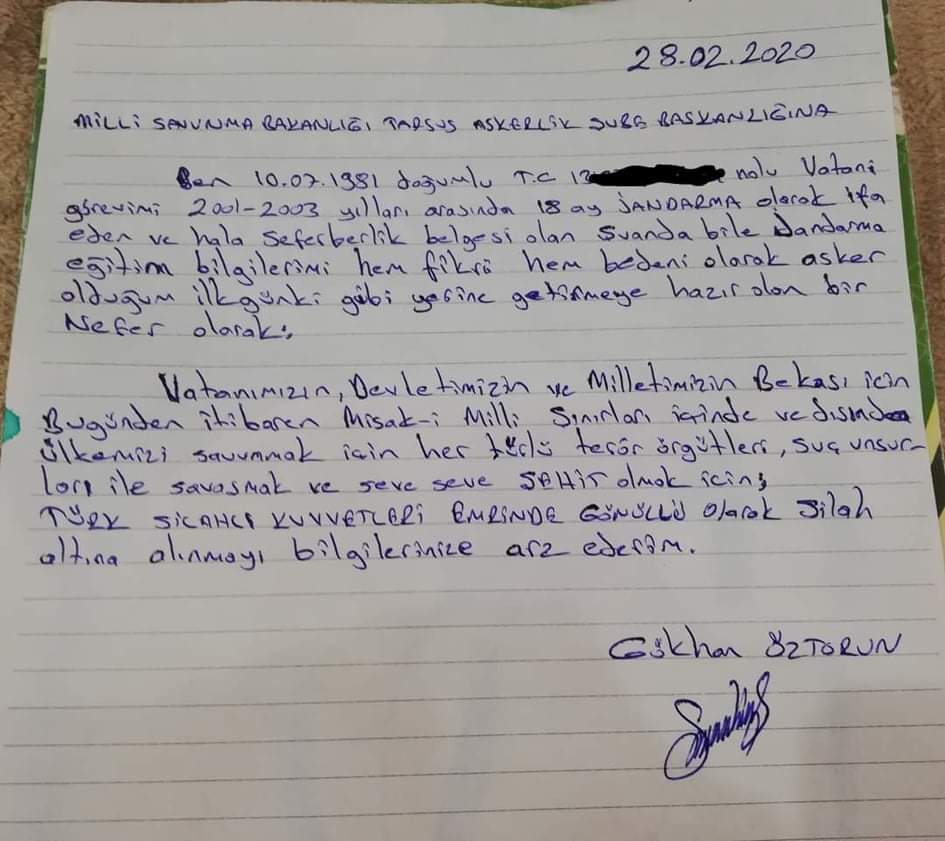 28.02.2020
MİLLİ SAVUNMA BAKANLIĞI TARSUS ASKERLİK ŞUBE BAŞKANLIĞINA
Ben 10.07.1981 doğumlu T.C 13 nolu Vatani
görevimi 2001-2003 yılları arasında 18 ay JANDARMA olarak ifa
eden ve hala Seferberlik belgesi olan Şuanda bile Jandarma
eğitim bilgilerimi hem fikrü hem bedeni olarak asker
olduğum ilk günki gibi yerine getirmeye hazır olan bir
Nefer olarak;
Vatanımızın, Devletimizin ve Milletimizin Bekası için
Bugünden itibaren Misak-i Milli Sınırları içinde ve dışında
Ülkemizi savunmak için her türlü terör örgütleri, suç unsur-
ları ile savaşmak ve seve seve ŞEHİT olmak için;
TÜRK SİLAHLI KUVVETLERİ EMRİNDE GÖNÜLLÜ olarak Silah
altına alınmayı bilgilerinize arz ederim.
Gökhan ÖZTORUN